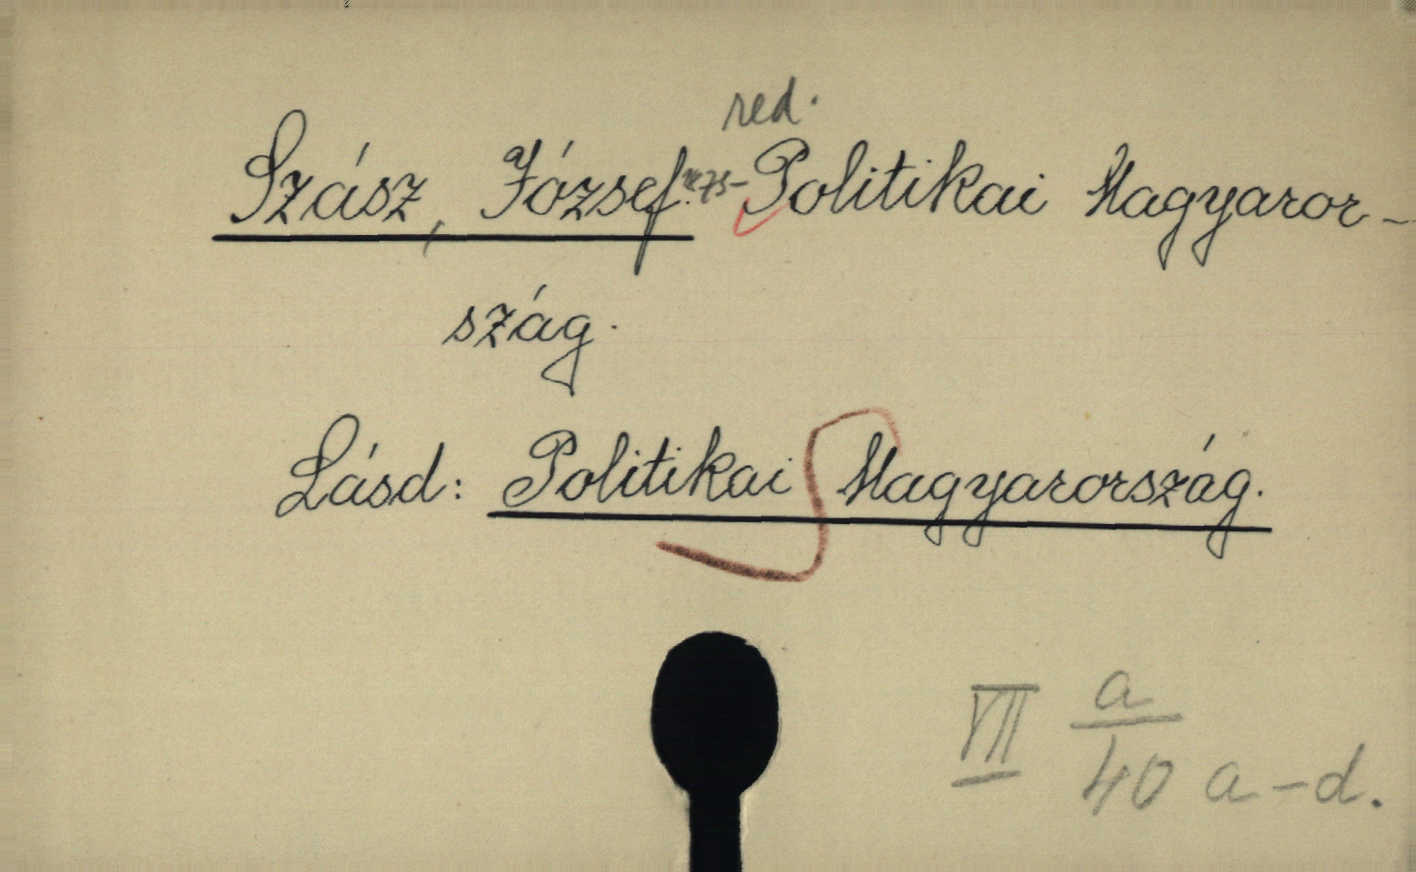 red.
Szász, József. Politikai Magyaror-
szág.
Lásd: Politikai Magyarország.
VII a
40 a-d.